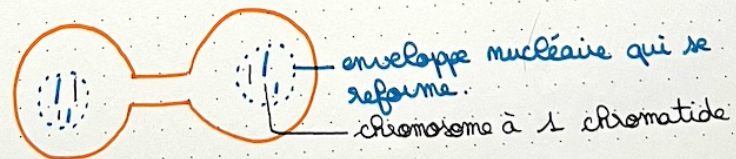 enveloppe nucléaire qui se
reforme.
chromosome à 1 chromatide